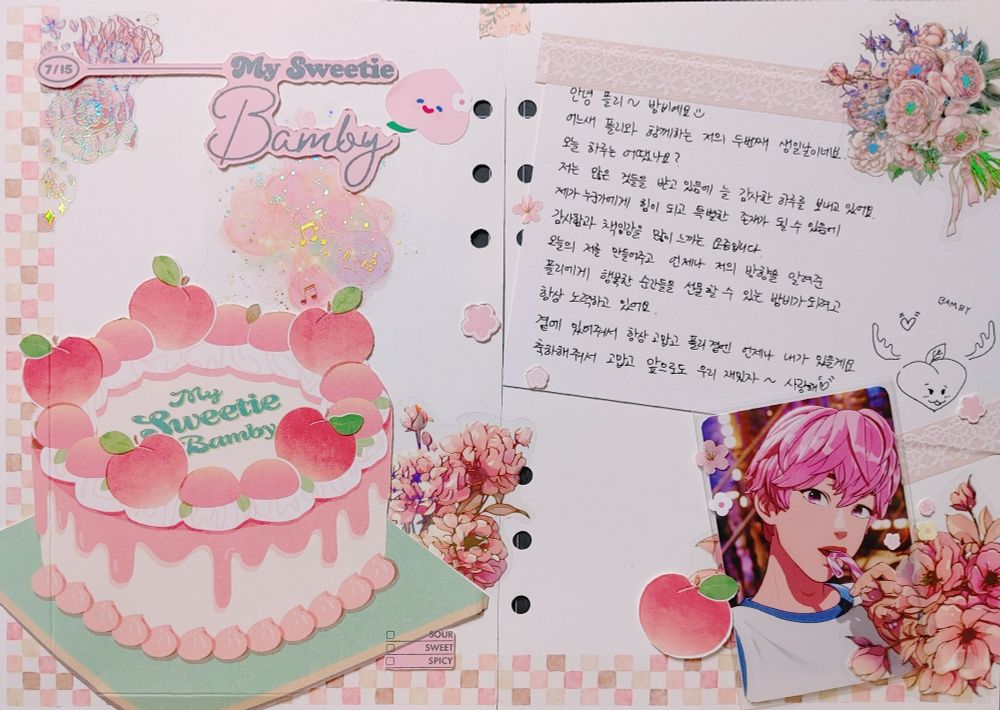 7/15
My Sweetie
Bamby
My
Sweetie
Bamby
SOUR
SWEET
SPICY
안녕 플리~ 밤비예요
어느새 플리와 함께하는 저의 두번째 생일날이네요.
오늘 하루는 어땠나요?
저는 많은 것들을 받고 있음에 늘 감사한 하루를 보내고 있어요.
제가 누군가에게 힘이 되고 특별한 존재가 될 수 있음에
감사함과 책임감을 많이 느끼는 요즘입니다.
오늘의 저를 만들어주고 언제나 저의 방향을 알려준
플리에게 행복한 순간들을 선물할 수 있는 밤비가 되려고
항상 노력하고 있어요.
곁에 있어줘서 항상 고맙고 플리 곁엔 언제나 내가 있을게요
축하해줘서 고맙고 앞으로도 우리 재밌자~ 사랑해
BAMBY